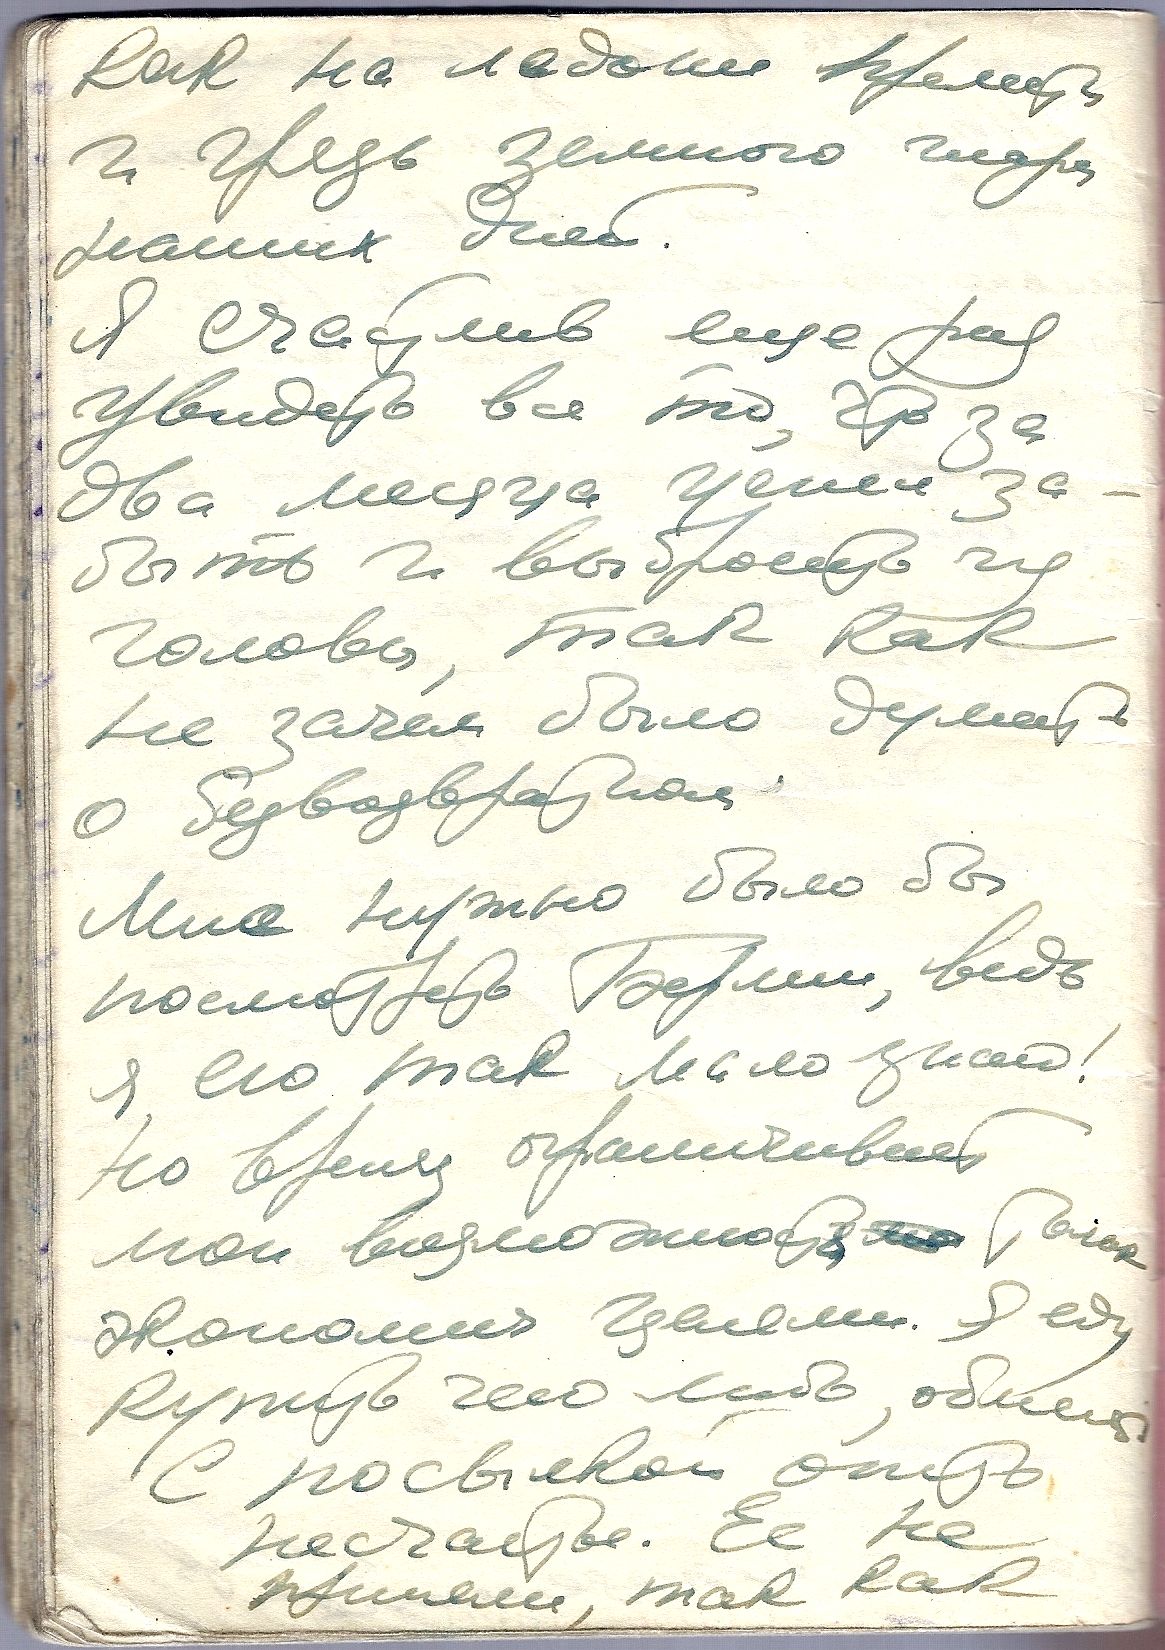 как на ладони прелесть
и грязь земного шара
наших дней.
Я счастлив еще раз
увидеть все то, что за
два месяца успел за-
быть и выбросить из
головы, так как
не зачем было думать
о безвозвратном.
Мне нужно было бы
посмотреть Берлин, ведь
я его так мало знаю!
Но время ограничивает
мои возможности
экономия времени. Я еду
купить чего либо,
С посылкой опять
несчастье. Ее не
приняли, так как